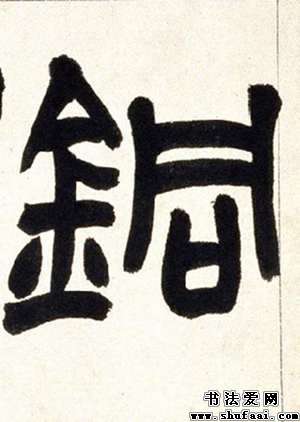 銅
书法爱网
www.shufaai.com